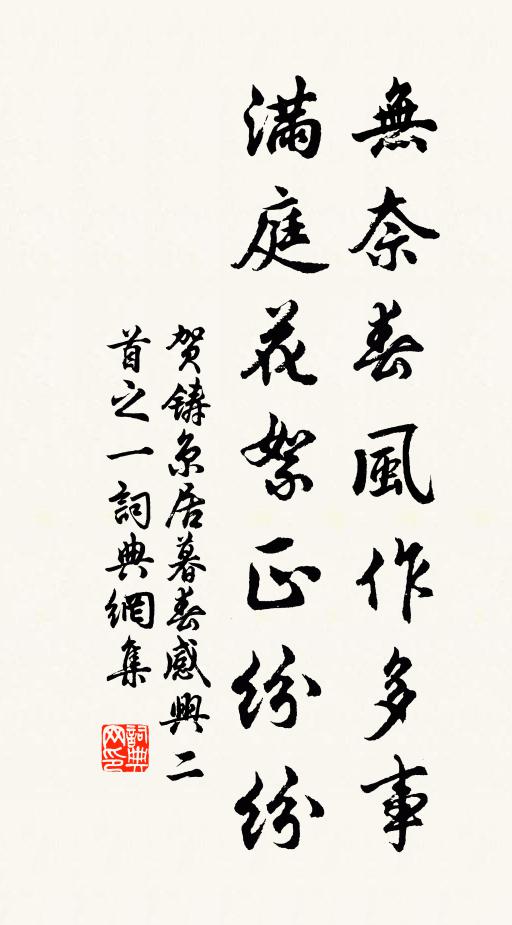 無奈春風作多事
滿庭花絮正紛紛
贺鑄京居暮春感興二
首之一詞典網集
詞典
网印